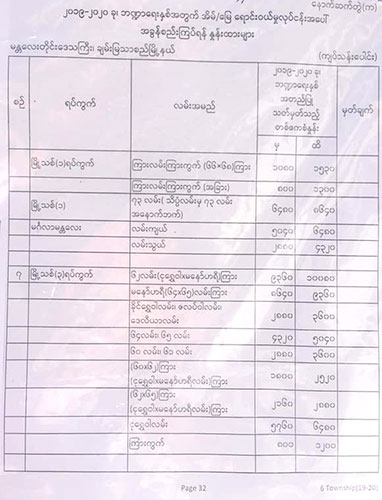 နောက်ဆက်တွဲ(က)
၂၀၁၉-၂၀၂၀ ခု၊ ဘဏ္ဍာရေးနှစ်အတွက် အိမ်/မြေ ရောင်းဝယ်မှုလုပ်ငန်းအပေါ်
အခွန်စည်းကြပ်ရန် နှုန်းထားများ
မန္တလေးတိုင်းဒေသကြီး၊ ချမ်းမြသာစည်မြို့နယ် (ကျပ်သန်းပေါင်း)
စဉ် ရပ်ကွက် လမ်းအမည် ၂၀၁၉-၂၀၂၀ ခု၊ ဘဏ္ဍာရေးနှစ် အတည်ပြု သတ်မှတ်သည့် တစ်ဧကစံနှုန်း မှတ်ချက်
မှ ထိ
မြို့သစ်(၁)ရပ်ကွက် ကြားလမ်းကြားကွက် (၆၆×၆၈)ကြား ၁၀၈၀ ၁၅၃၀
ကြားလမ်းကြားကွက် (အခြား) ၈၀၀
မြို့သစ်(၁) ၇၃ လမ်း( သိပ္ပံလမ်းမှ ၇၃ လမ်း အနောက်ဘက်) ၆၄၈၀ ၈၆၄၀
မင်္ဂလာမန္တလေး လမ်းကျယ် ၅၀၄၀ ၆၄၈၀
လမ်းသွယ် ၂၈၈၀ ၄၃၂၀
၇ မြို့သစ်(၃)ရပ်ကွက် ၆၂လမ်း(ငုရွှေဝါ×မနော်ဟရီ)ကြား ၉၃၆၀ ၁၀၀၈၀
မနော်ဟရီ(၆၄×၆၅)လမ်းကြား ၈၆၄၀ ၉၃၆၀
ခိုင်ရွှေဝါလမ်း၊ ဇလပ်ဝါလမ်း၊ ဒေလီယာလမ်း ၂၈၈၀ ၃၆၀၀
၆၄လမ်း၊ ၆၅ လမ်း ၄၃၂၀ ၅၀၄၀
၆၀ လမ်း၊ ၆၁ လမ်း ၂၈၈၀ ၃၆၀၀
(၆၀×၆၂)ကြား (ငုရွှေဝါ×မနော်ဟရီလမ်း)ကြား ၁၈၀၀ ၂၅၂၀
(၆၂×၆၅)ကြား (ငုရွှေဝါ×မနော်ဟရီလမ်း)ကြား ၂၁၆၀ ၂၈၈၀
ငုရွှေဝါလမ်း ၅၇၆၀ ၆၄၈၀
ကြားကွက် ၈၀၀ ၁၂၀၀
Page 32 6 Township(19-20)